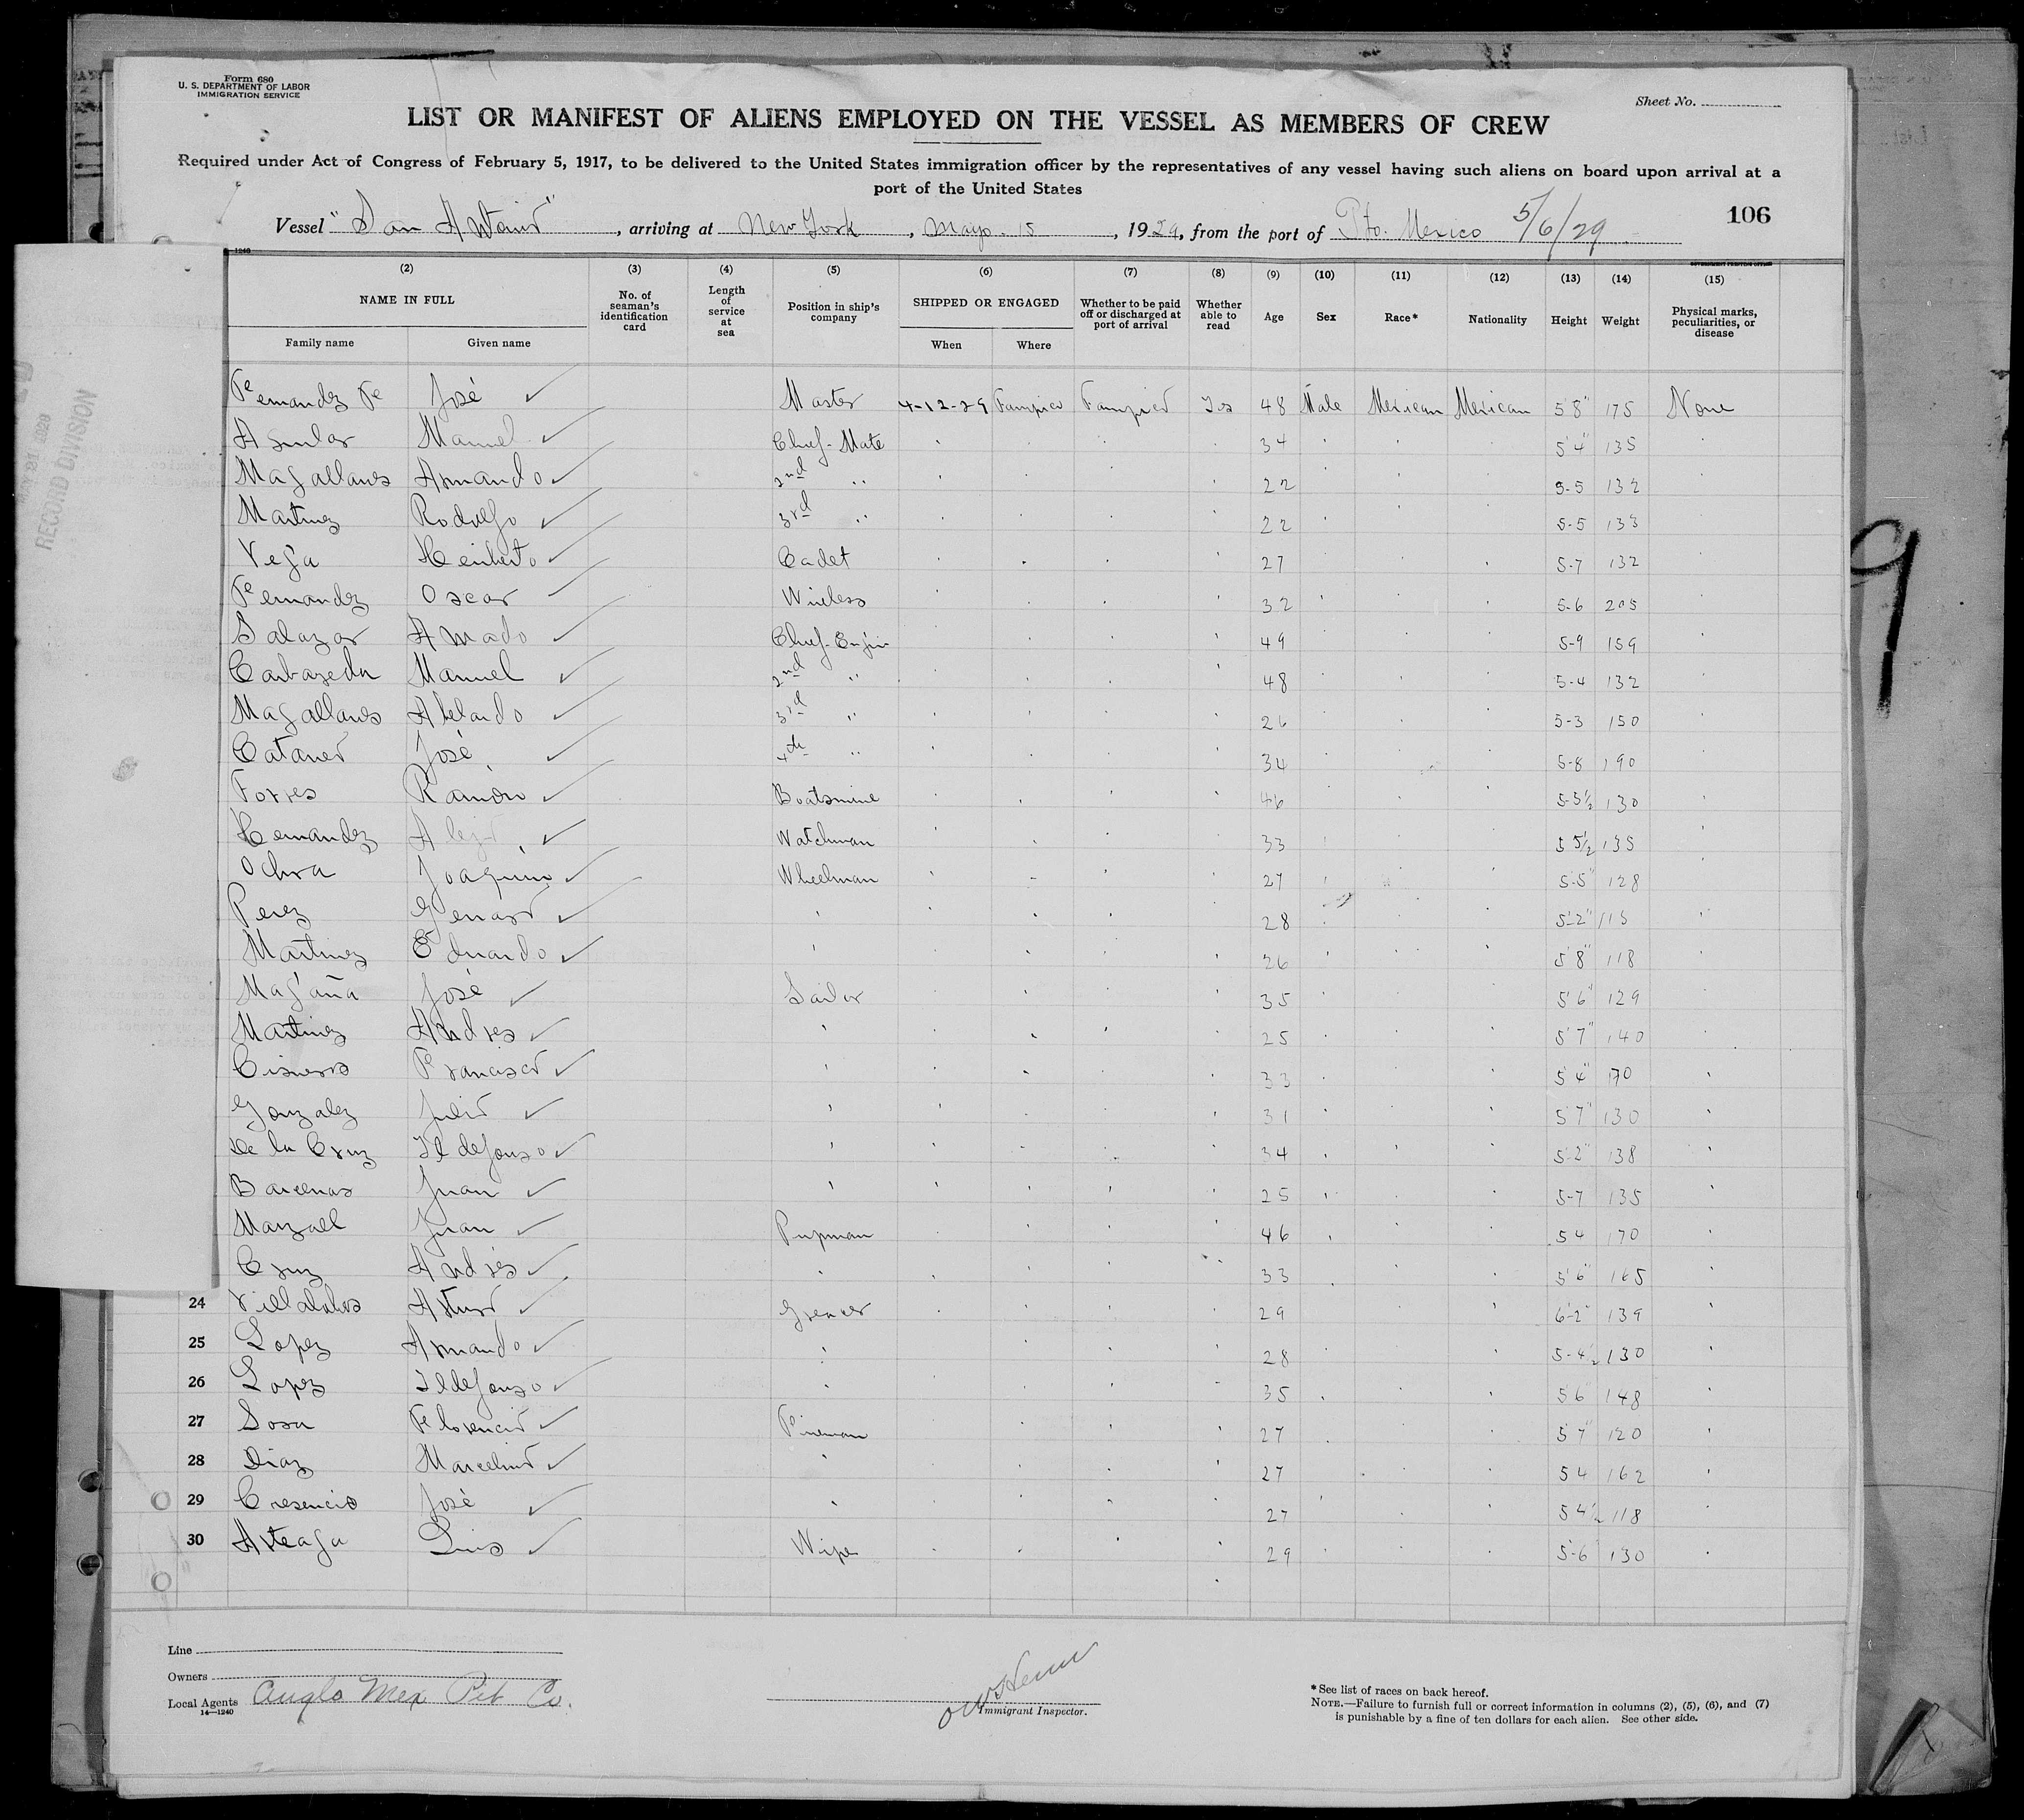 Form 680
U. S. DEPARTMENT OF LABOR
IMMIGRATION SERVICE
Sheet No.
LIST OR MANIFEST OF ALIENS EMPLOYED ON THE VESSEL AS MEMBERS OF CREW
Required under Act of Congress of February 5, 1917, to be delivered to the United States immigration officer by the representatives of any vessel having such aliens on board upon arrival at a
port of the United States
Vessel "San Antonio", arriving at New York, Mayo 15, 1929, from the port of Pto. Mexico 5/6/29 106
(2) (3) (4) (5) (6) (7) (8) (9) (10) (11) (12) (13) (14) (15)
NAME IN FULL No. of seaman's identification card Length of service at sea Position in ship's company SHIPPED OR ENGAGED Whether to be paid off or discharged at port of arrival Whether able to read Age Sex Race* Nationality Height Weight Physical marks, peculiarities, or disease
Family name Given name When Where
Fernandez Fe José ✓ Master 4-12-29 Tampico Tampico Yes 48 Male Mexican Mexican 5'8" 175 None
Aguilar Manuel ✓ Chief-Mate 34 5'4" 135
Magallanes Armando ✓ 2nd " 22 5-5 132
Martinez Rodolfo ✓ 3rd " 22 5-5 133
Vega Heriberto ✓ Cadet 27 5-7 132
Fernandez Oscar ✓ Wireless 32 5-6 205
Salazar Amado ✓ Chief-Engin 49 5-9 159
Manuel ✓ 2nd " 48 5-4 132
Magallanes Abelardo ✓ 3rd " 26 5-3 150
José ✓ 4th " 34 5-8 190
Torres Ramón ✓ Boatsmine 46 5-5½ 130
Hernandez Alejo ✓ Watchman 33 5 5½ 135
Ochoa Joaquino ✓ Wheelman 27 5-5" 128
Perez Genaro ✓ 28 5'-2" 115
Martinez Eduardo ✓ 26 5'8" 118
Magaña José ✓ Sailor 35 5'6" 129
Martinez Andres ✓ 25 5'7" 140
Cisneros Francisco ✓ 33 5'4" 170
Gonzalez Julio ✓ 31 5'7" 130
De la Cruz Ildefonso ✓ 34 5'-2" 138
Barcenas Juan ✓ 25 5-7 135
Juan ✓ Pupman 46 54 170
Cruz Andrés ✓ 33 5'6" 165
24 Villalobos Arturo ✓ Greacer 29 6'-2" 139
25 Lopez Armando ✓ 28 5-4½ 130
26 Lopez Ildefonso ✓ 35 56 148
27 Sosa Florencio ✓ Fireman 27 57" 120
28 Diaz Marcelino ✓ 27 54 162
29 Cresencio José ✓ 27 54½ 118
30 Arteaga Luis ✓ Wiper 29 5-6 130
Line
Owners
Local Agents Anglo Mex Pet Co.
14—1240
Immigrant Inspector.
*See list of races on back hereof.
NOTE.—Failure to furnish full or correct information in columns (2), (5), (6), and (7)
is punishable by a fine of ten dollars for each alien. See other side.
RECORD DIVISION
9